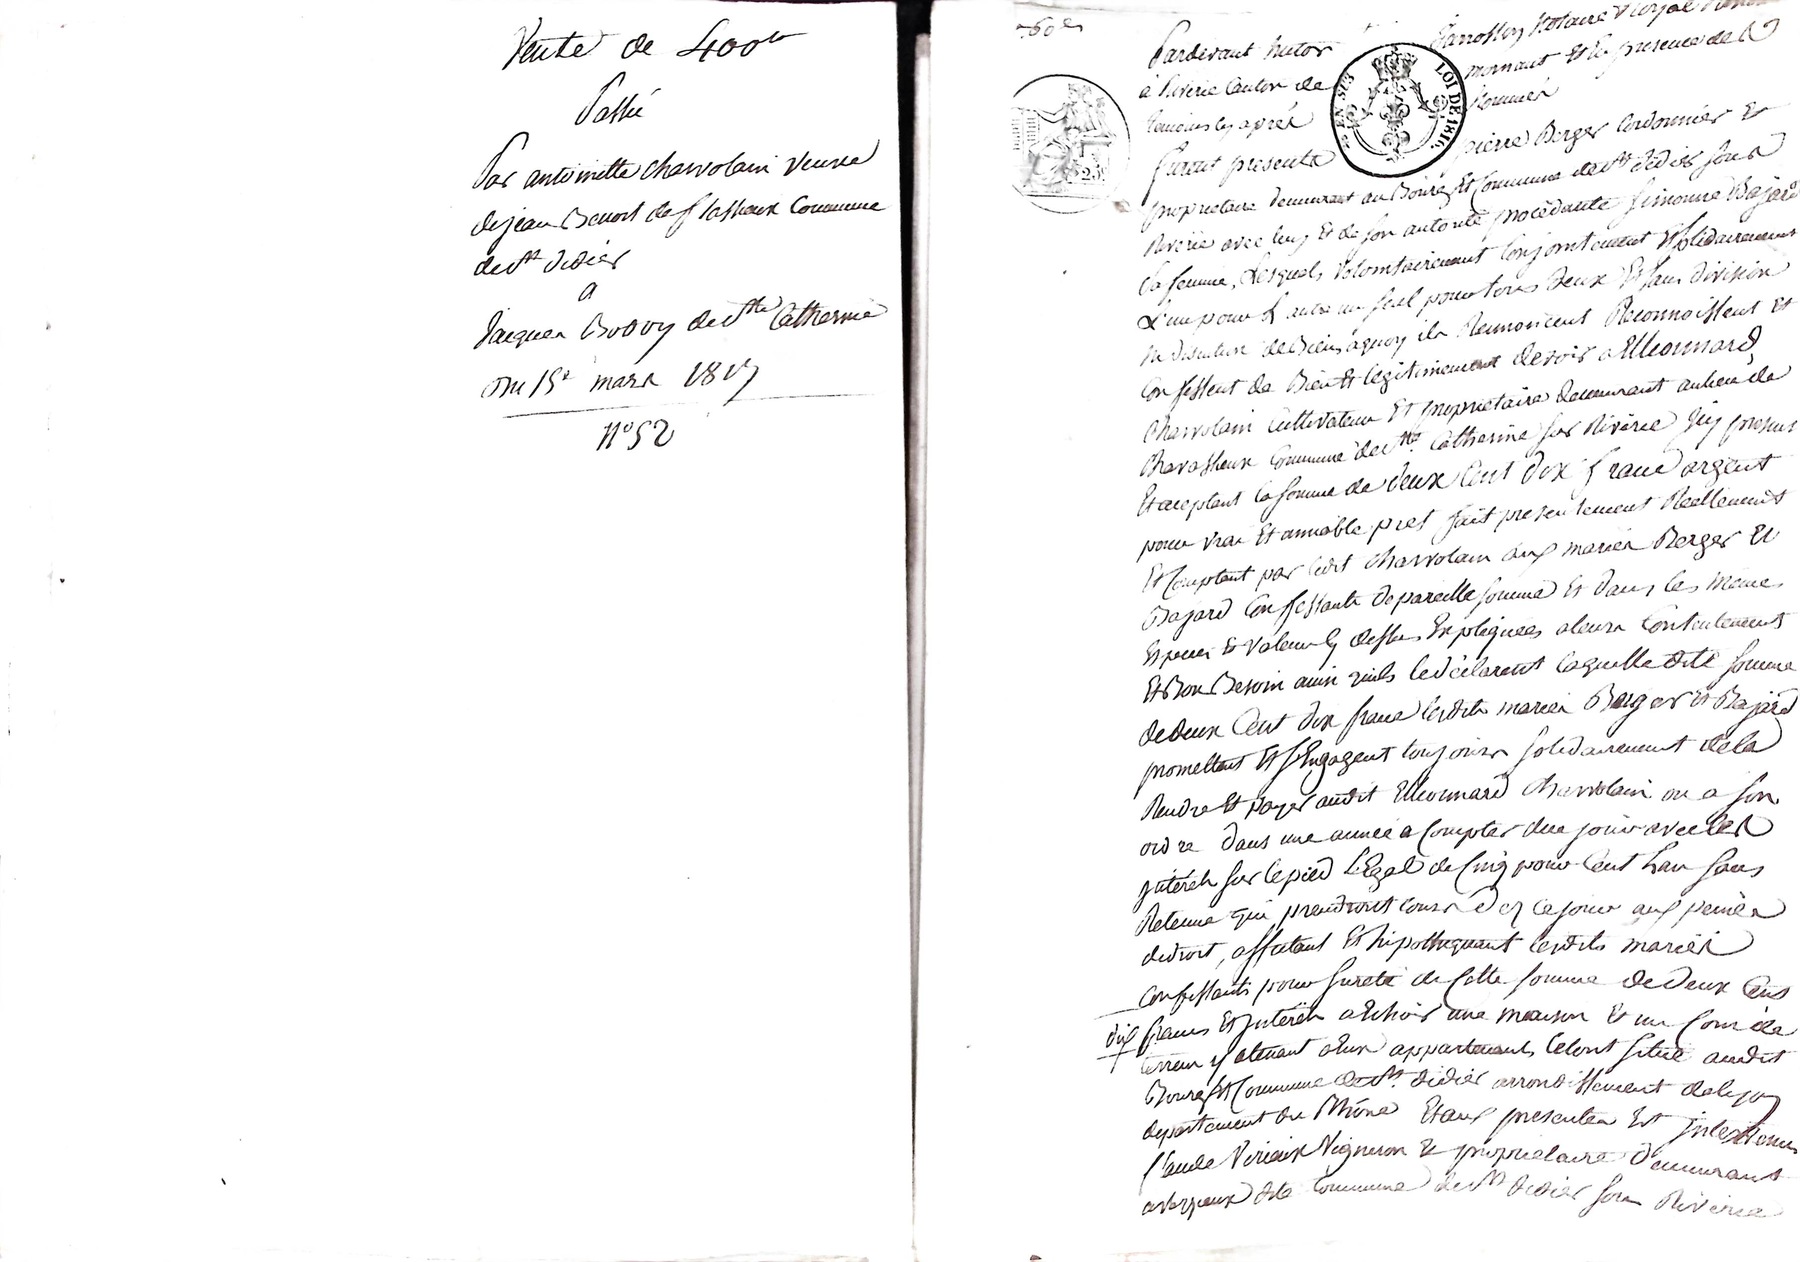 Vente de 400#
Passé
Par antoinette charvolain veuve
de jean Benoit de flasseux Commune
de st didier
a
Jacques Bovoy de ste Catherine
Du 15e mars 1817
N° 52
Pardevant hector Parrossey Notaire Royal
à Riverie Canton de mornant Et En presence de
temoins cy après Nommés
furent presents pierre Berger Cordonnier Et
LOI DE 1816
EN SUS
25
proprietaire demeurant au Bourg Et Commune de st didier sous
Riverie avec luy Et de son autorité procédante Simonne Bajard
sa femme, Lesquels volontairement Conjointement Et solidairement
L'un pour L'autre un seul pour tous deux Et sans division
ni discution de Biens aquoy ils Renoncent Reconnoissent Et
Confessent de Bien Et legitimement devoir a Eleonnard
Charvolain Cultivateur Et proprietaire demeurant au lieu de
Chavasseux Commune de ste Catherine sur Riverie Icy present
Et aceptant la somme de deux Cent dix franc argent
pour vrai Et amiable pret fait presentement Reellement
Et Comptant par ledit Charvolain aux mariés Berger Et
Bajard Confessants de pareille somme Et dans les mêmes
Especes Et valeur cy dessus Expliquées a leurs Contentement
Et Bon Besoin ainsi quils le déclarent laquelle dite somme
de deux Cent dix franc lesdits mariés Berger Et Bajard
promettent Et s'Engagent toujours solidairement de la
Rendre Et payer audit Eleonnard Charvolain ou a son
ordre dans une année a Compter du jour avec les
Intérêts sur le pied Légal de Cinq pour Cent L'an sans
Retenue qui prendront cours dez ce jour aux peines
de droit, affectant Et hipothequant lesdits mariés
Confessants pour sureté de Cette somme de deux Cent
dix francs Et Intérêts a Echoir une maison Et un Coin de
terrein y atenant a Eux appartenants le tout situé audit
Bourg Et Commune de st didier arrondissement de lyon
departement du Rhône Et aux presentes Est Intervenu
Claude Viricix Vigneron Et proprietaire demeurant
dite Commune de st didier sous Riverie